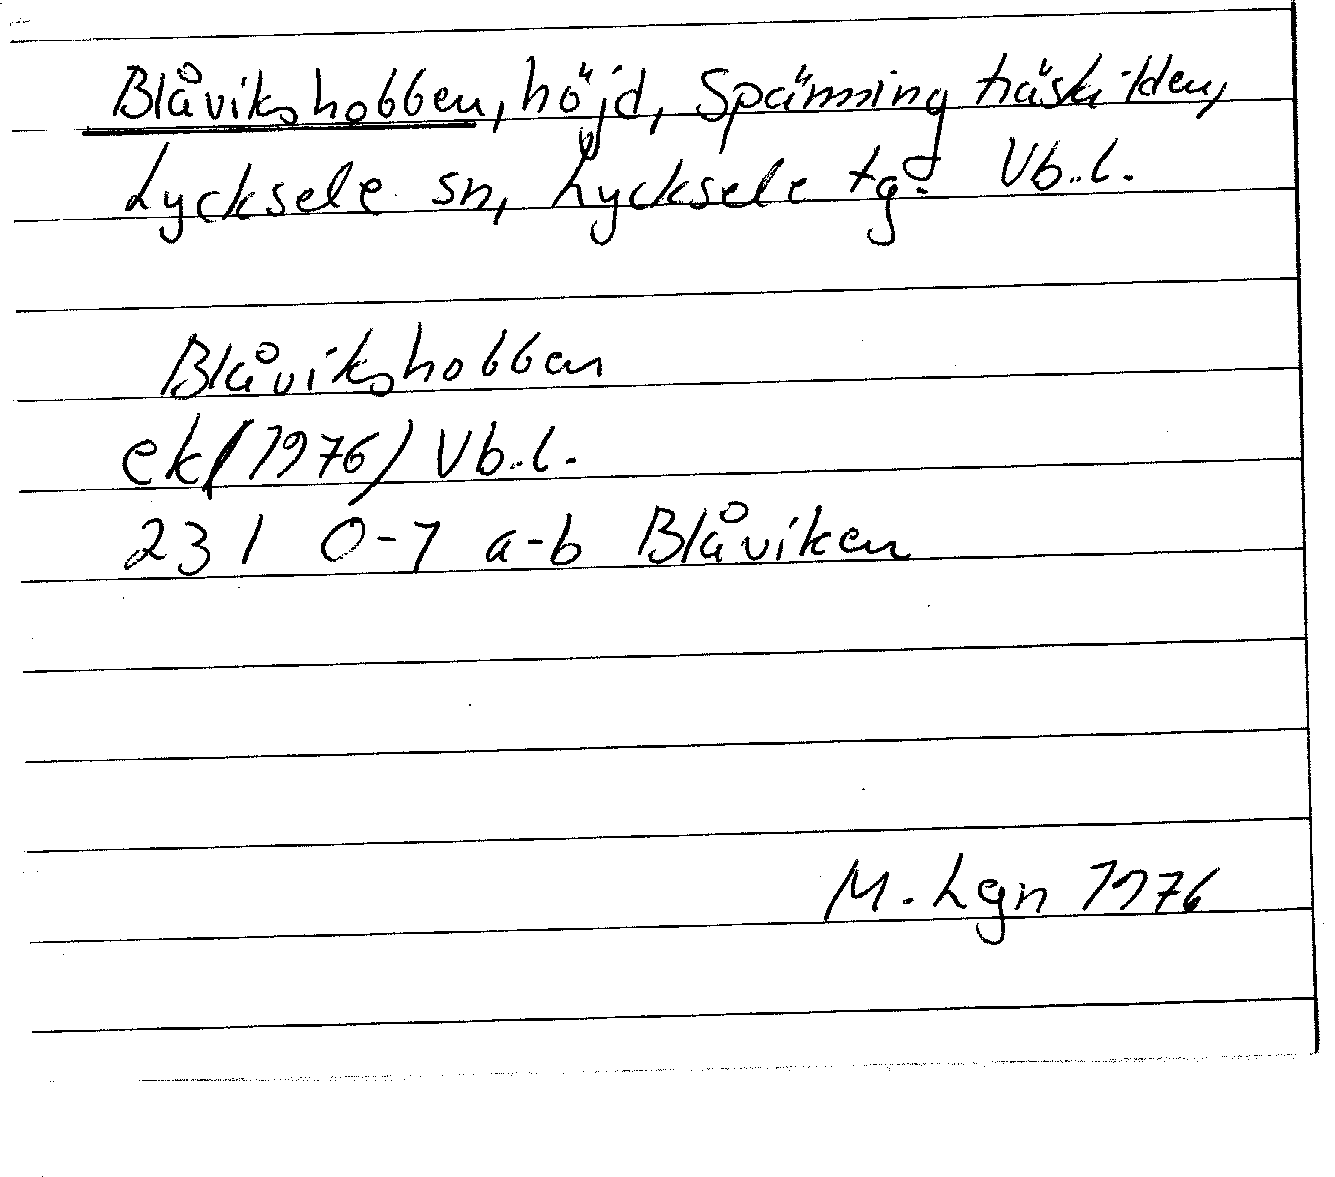 Blåvikshobben, höjd, Spänning
Lycksele sn, Lycksele tgd Vb.l.
Blåvikshobben
ek (1976) Vb.l.
23 I 0-7 a-b Blåviken
M. Lgn 1976